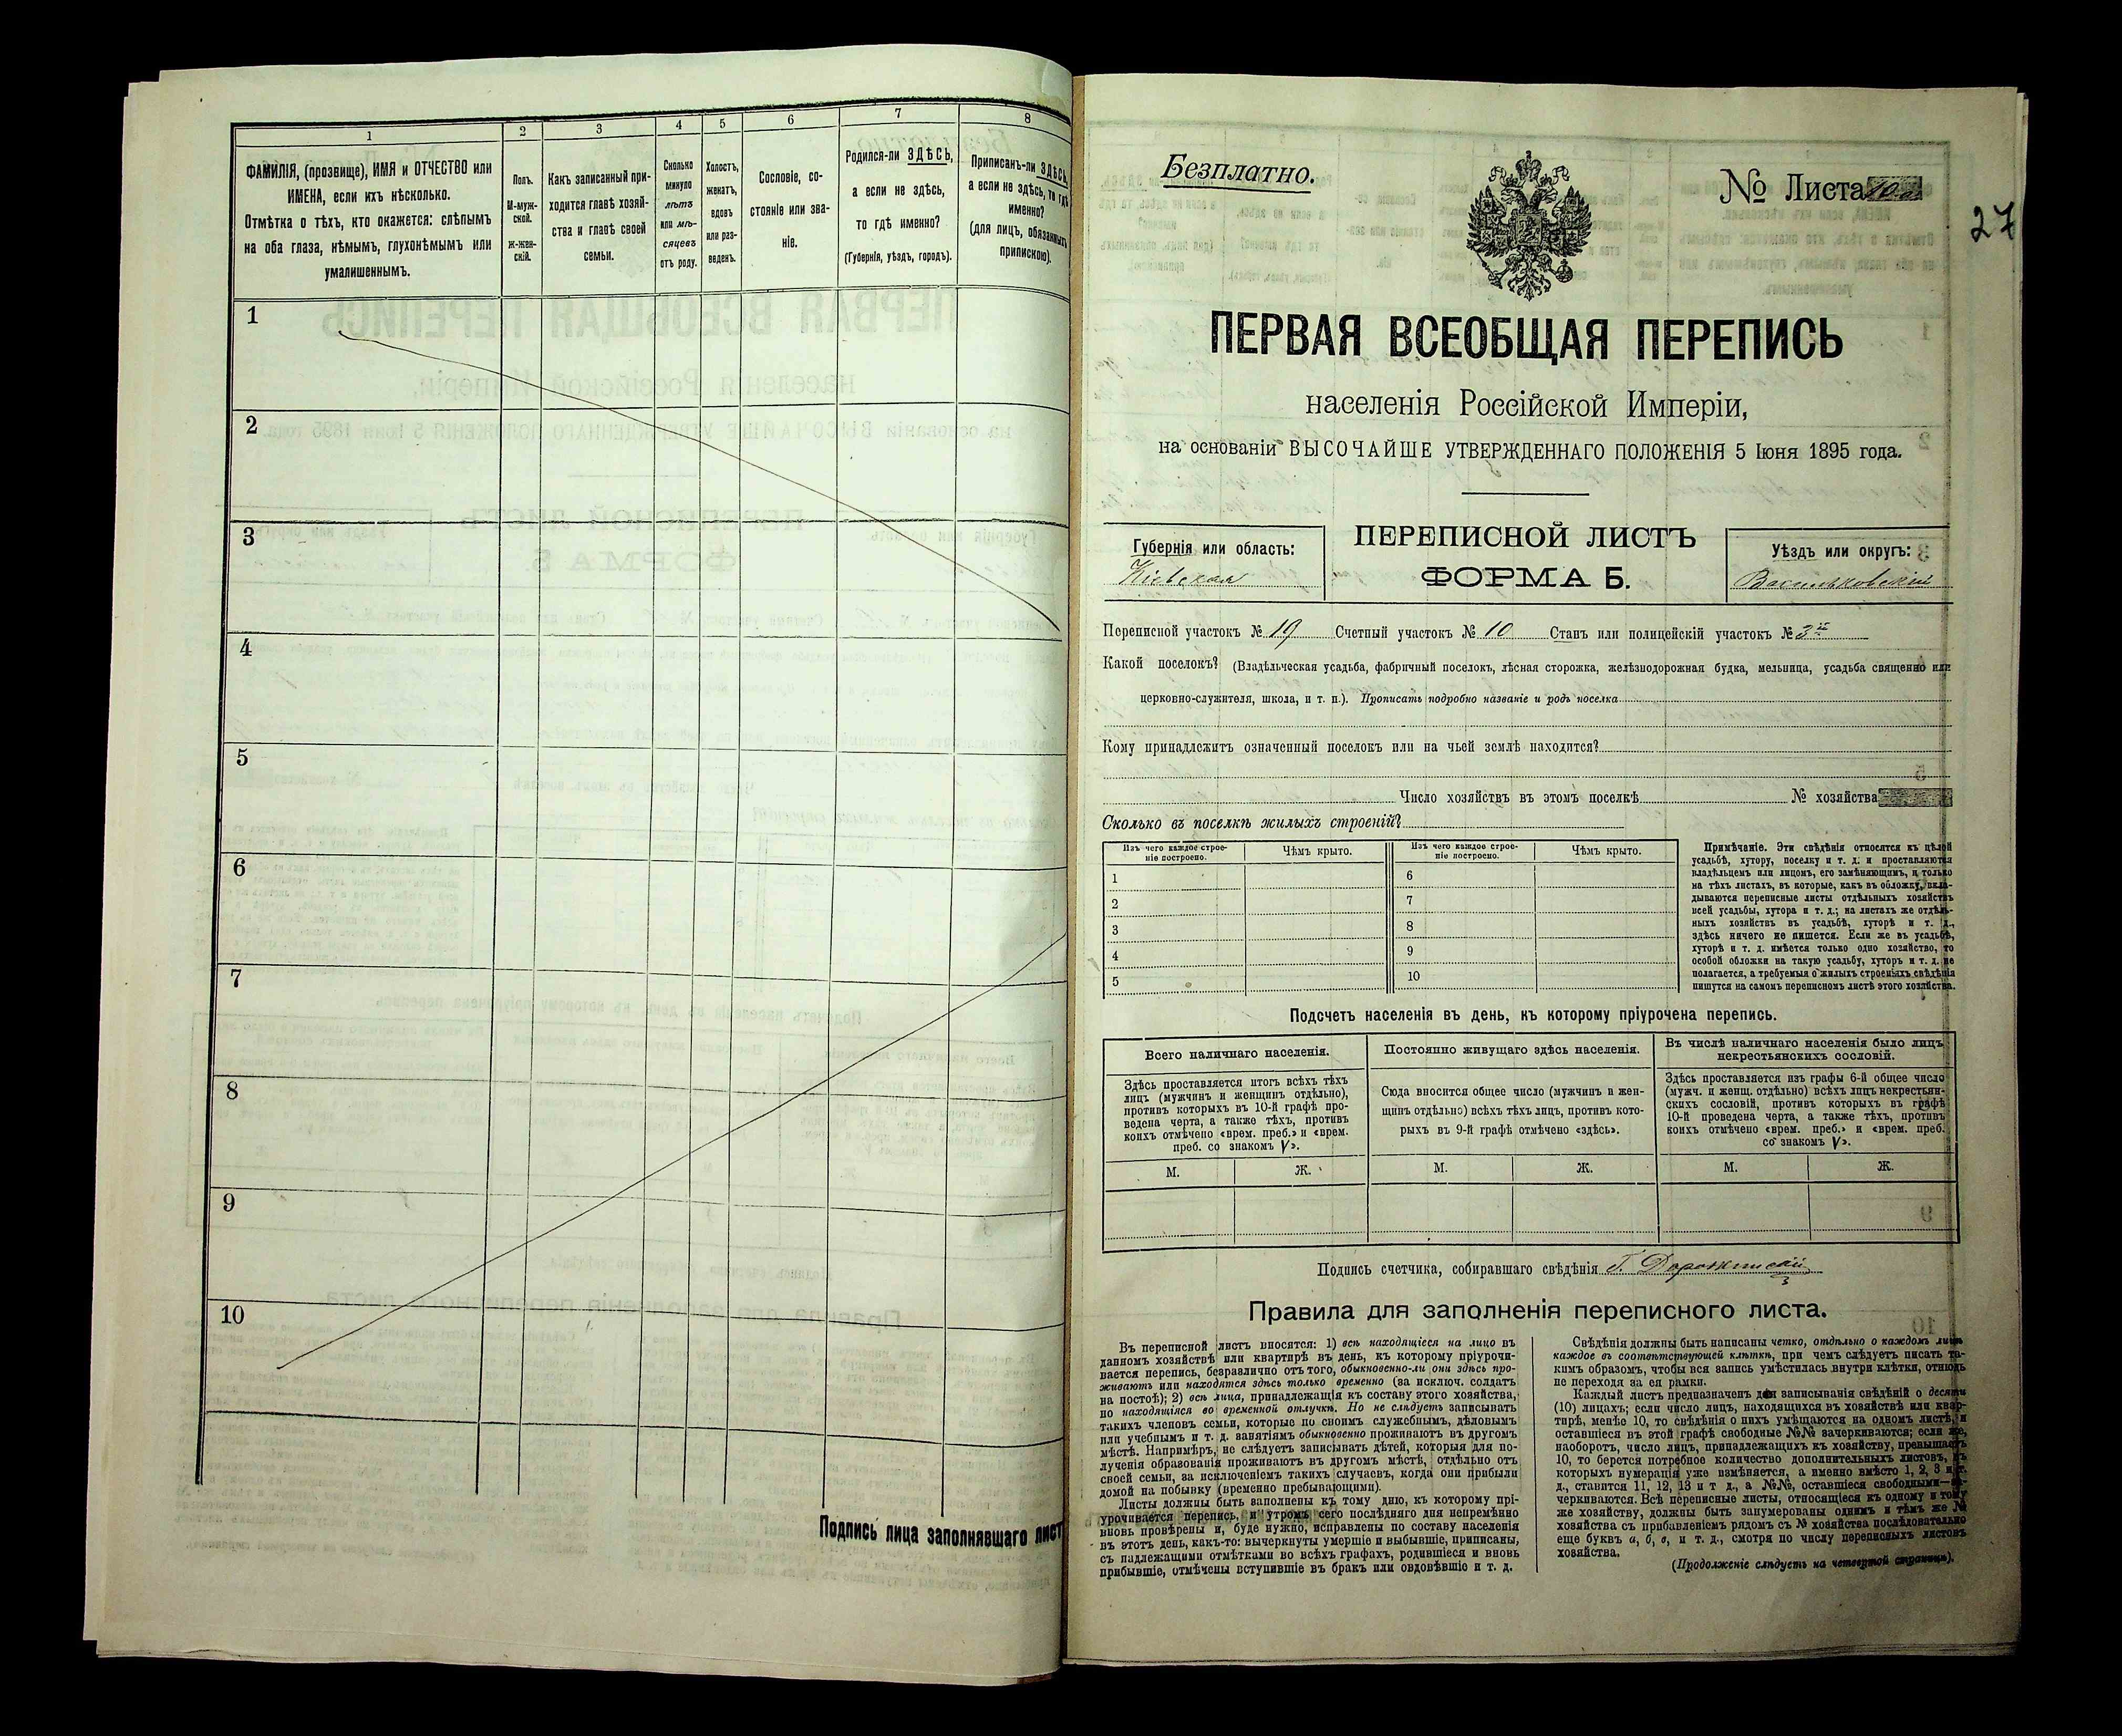 1
2
3
4
5
6
7
8
ФАМИЛІЯ, (прозвище), ИМЯ и ОТЧЕСТВО или
ИМЕНА, если ихъ нѣсколько.
Отмѣтка о тѣхъ, кто окажется: слѣпымъ
на оба глаза, нѣмымъ, глухонѣмымъ или
умалишеннымъ.
Полъ.
М-муж-
ской.
ж-жен-
скій.
Какъ записанный при-
ходится главѣ хозяй-
ства и главѣ своей
семьи.
Сколько
минуло
лѣтъ
или мѣ-
сяцевъ
отъ роду.
Холостъ,
женатъ,
вдовъ
или раз-
веденъ.
Сословіе, со-
стояніе или зва-
ніе.
Родился-ли ЗДѢСЬ,
а если не здѣсь,
то гдѣ именно?
(Губернія, уѣздъ, городъ).
Приписанъ-ли ЗДѢСЬ,
а если не здѣсь, то гдѣ
именно?
(для лицъ, обязанныхъ
припискою).
1
2
3
4
5
6
7
8
9
10
Подпись лица заполнявшаго лист
Безплатно.
№ Листа 10
27
ПЕРВАЯ ВСЕОБЩАЯ ПЕРЕПИСЬ
населенія Россійской Имперіи,
на основаніи ВЫСОЧАЙШЕ УТВЕРЖДЕННАГО ПОЛОЖЕНІЯ 5 Іюня 1895 года.
Губернія или область:
Кіевская
ПЕРЕПИСНОЙ ЛИСТЪ
ФОРМА Б.
Уѣздъ или округъ:
Васильковскій
Переписной участокъ № 19 Счетный участокъ № 10 Станъ или полицейскій участокъ № 3
Какой поселокъ? (Владѣльческая усадьба, фабричный поселокъ, лѣсная сторожка, желѣзнодорожная будка, мельница, усадьба священно или
церковно-служителя, школа, и т. п.). Прописать подробно названіе и родъ поселка
Кому принадлежитъ означенный поселокъ или на чьей землѣ находится?
Число хозяйствъ въ этомъ поселкѣ № хозяйства
Сколько въ поселкѣ жилыхъ строеній?
Изъ чего каждое строе-
ніе построено.
Чѣмъ крыто.
Изъ чего каждое строе-
ніе построено.
Чѣмъ крыто.
1
2
3
4
5
6
7
8
9
10
Примѣчаніе. Эти свѣдѣнія относятся къ цѣлой
усадьбѣ, хутору, поселку и т. д. и проставляются
владѣльцемъ или лицомъ, его замѣняющимъ, и только
на тѣхъ листахъ, въ которые, какъ въ обложку, вкла-
дываются переписные листы отдѣльныхъ хозяйствъ
всей усадьбы, хутора и т. д.; на листахъ же отдѣль-
ныхъ хозяйствъ въ усадьбѣ, хуторѣ и т. д.,
здѣсь ничего не пишется. Если же въ усадьбѣ,
хуторѣ и т. д. имѣется только одно хозяйство, то
особой обложки на такую усадьбу, хуторъ и т. д. не
полагается, а требуемыя о жилыхъ строеніяхъ свѣдѣнія
пишутся на самомъ переписномъ листѣ этого хозяйства.
Подсчетъ населенія въ день, къ которому пріурочена перепись.
Всего наличнаго населенія.
Здѣсь проставляется итогъ всѣхъ тѣхъ
лицъ (мужчинъ и женщинъ отдѣльно),
противъ которыхъ въ 10-й графѣ про-
ведена черта, а также тѣхъ, противъ
коихъ отмѣчено «врем. преб.» и «врем.
преб. со знакомъ V».
М. Ж.
Постоянно живущаго здѣсь населенія.
Сюда вносится общее число (мужчинъ и жен-
щинъ отдѣльно) всѣхъ тѣхъ лицъ, противъ кото-
рыхъ въ 9-й графѣ отмѣчено «здѣсь».
М. Ж.
Въ числѣ наличнаго населенія было лицъ
некрестьянскихъ сословій.
Здѣсь проставляется изъ графы 6-й общее число
(мужч. и женщ. отдѣльно) всѣхъ лицъ некрестьян-
скихъ сословій, противъ которыхъ въ графѣ
10-й проведена черта, а также тѣхъ, противъ
коихъ отмѣчено «врем. преб.» и «врем. преб.
со знакомъ V».
М. Ж.
Подпись счетчика, собиравшаго свѣдѣнія Г. Дорожинскій
Правила для заполненія переписного листа.
Въ переписной листъ вносятся: 1) всѣ находящіеся на лицо въ
данномъ хозяйствѣ или квартирѣ въ день, къ которому пріурочи-
вается перепись, безразлично отъ того, обыкновенно-ли они здѣсь про-
живаютъ или находятся здѣсь только временно (за исключ. солдатъ
на постоѣ); 2) всѣ лица, принадлежащія къ составу этого хозяйства,
но находящіяся во временной отлучкѣ. Но не слѣдуетъ записывать
такихъ членовъ семьи, которые по своимъ служебнымъ, дѣловымъ
или учебнымъ и т. д. занятіямъ обыкновенно проживаютъ въ другомъ
мѣстѣ. Напримѣръ, не слѣдуетъ записывать дѣтей, которыя для по-
лученія образованія проживаютъ въ другомъ мѣстѣ, отдѣльно отъ
своей семьи, за исключеніемъ такихъ случаевъ, когда они прибыли
домой на побывку (временно пребывающими).
Листы должны быть заполнены къ тому дню, къ которому прі-
урочивается перепись, и утромъ сего послѣдняго дня непремѣнно
вновь провѣрены и, буде нужно, исправлены по составу населенія
въ этотъ день, какъ-то: вычеркнуты умершіе и выбывшіе, приписаны,
съ надлежащими отмѣтками во всѣхъ графахъ, родившіеся и вновь
прибывшіе, отмѣчены вступившіе въ бракъ или овдовѣвшіе и т. д.
Свѣдѣнія должны быть написаны четко, отдѣльно о каждомъ лицѣ
каждое въ соотвѣтствующей клѣткѣ, при чемъ слѣдуетъ писать та-
кимъ образомъ, чтобы вся запись умѣстилась внутри клѣтки, отнюдь
не переходя за ея рамки.
Каждый листъ предназначенъ для записыванія свѣдѣній о десяти
(10) лицахъ; если число лицъ, находящихся въ хозяйствѣ или квар-
тирѣ, менѣе 10, то свѣдѣнія о нихъ умѣщаются на одномъ листѣ, и
оставшіеся въ этой графѣ свободные №№ зачеркиваются; если же,
наоборотъ, число лицъ, принадлежащихъ къ хозяйству, превышаетъ
10, то берется потребное количество дополнительныхъ листовъ, въ
которыхъ нумерація уже измѣняется, а именно вмѣсто 1, 2, 3 и т.
д., ставится 11, 12, 13 и т д., а №№, оставшіеся свободными—за-
черкиваются. Всѣ переписные листы, относящіеся къ одному и тому
же хозяйству, должны быть занумерованы однимъ и тѣмъ же №
хозяйства съ прибавленіемъ рядомъ съ № хозяйства послѣдовательно
еще буквъ а, б, в, и т. д., смотря по числу переписныхъ листовъ
хозяйства.
(Продолженіе слѣдуетъ на четвертой страницѣ).